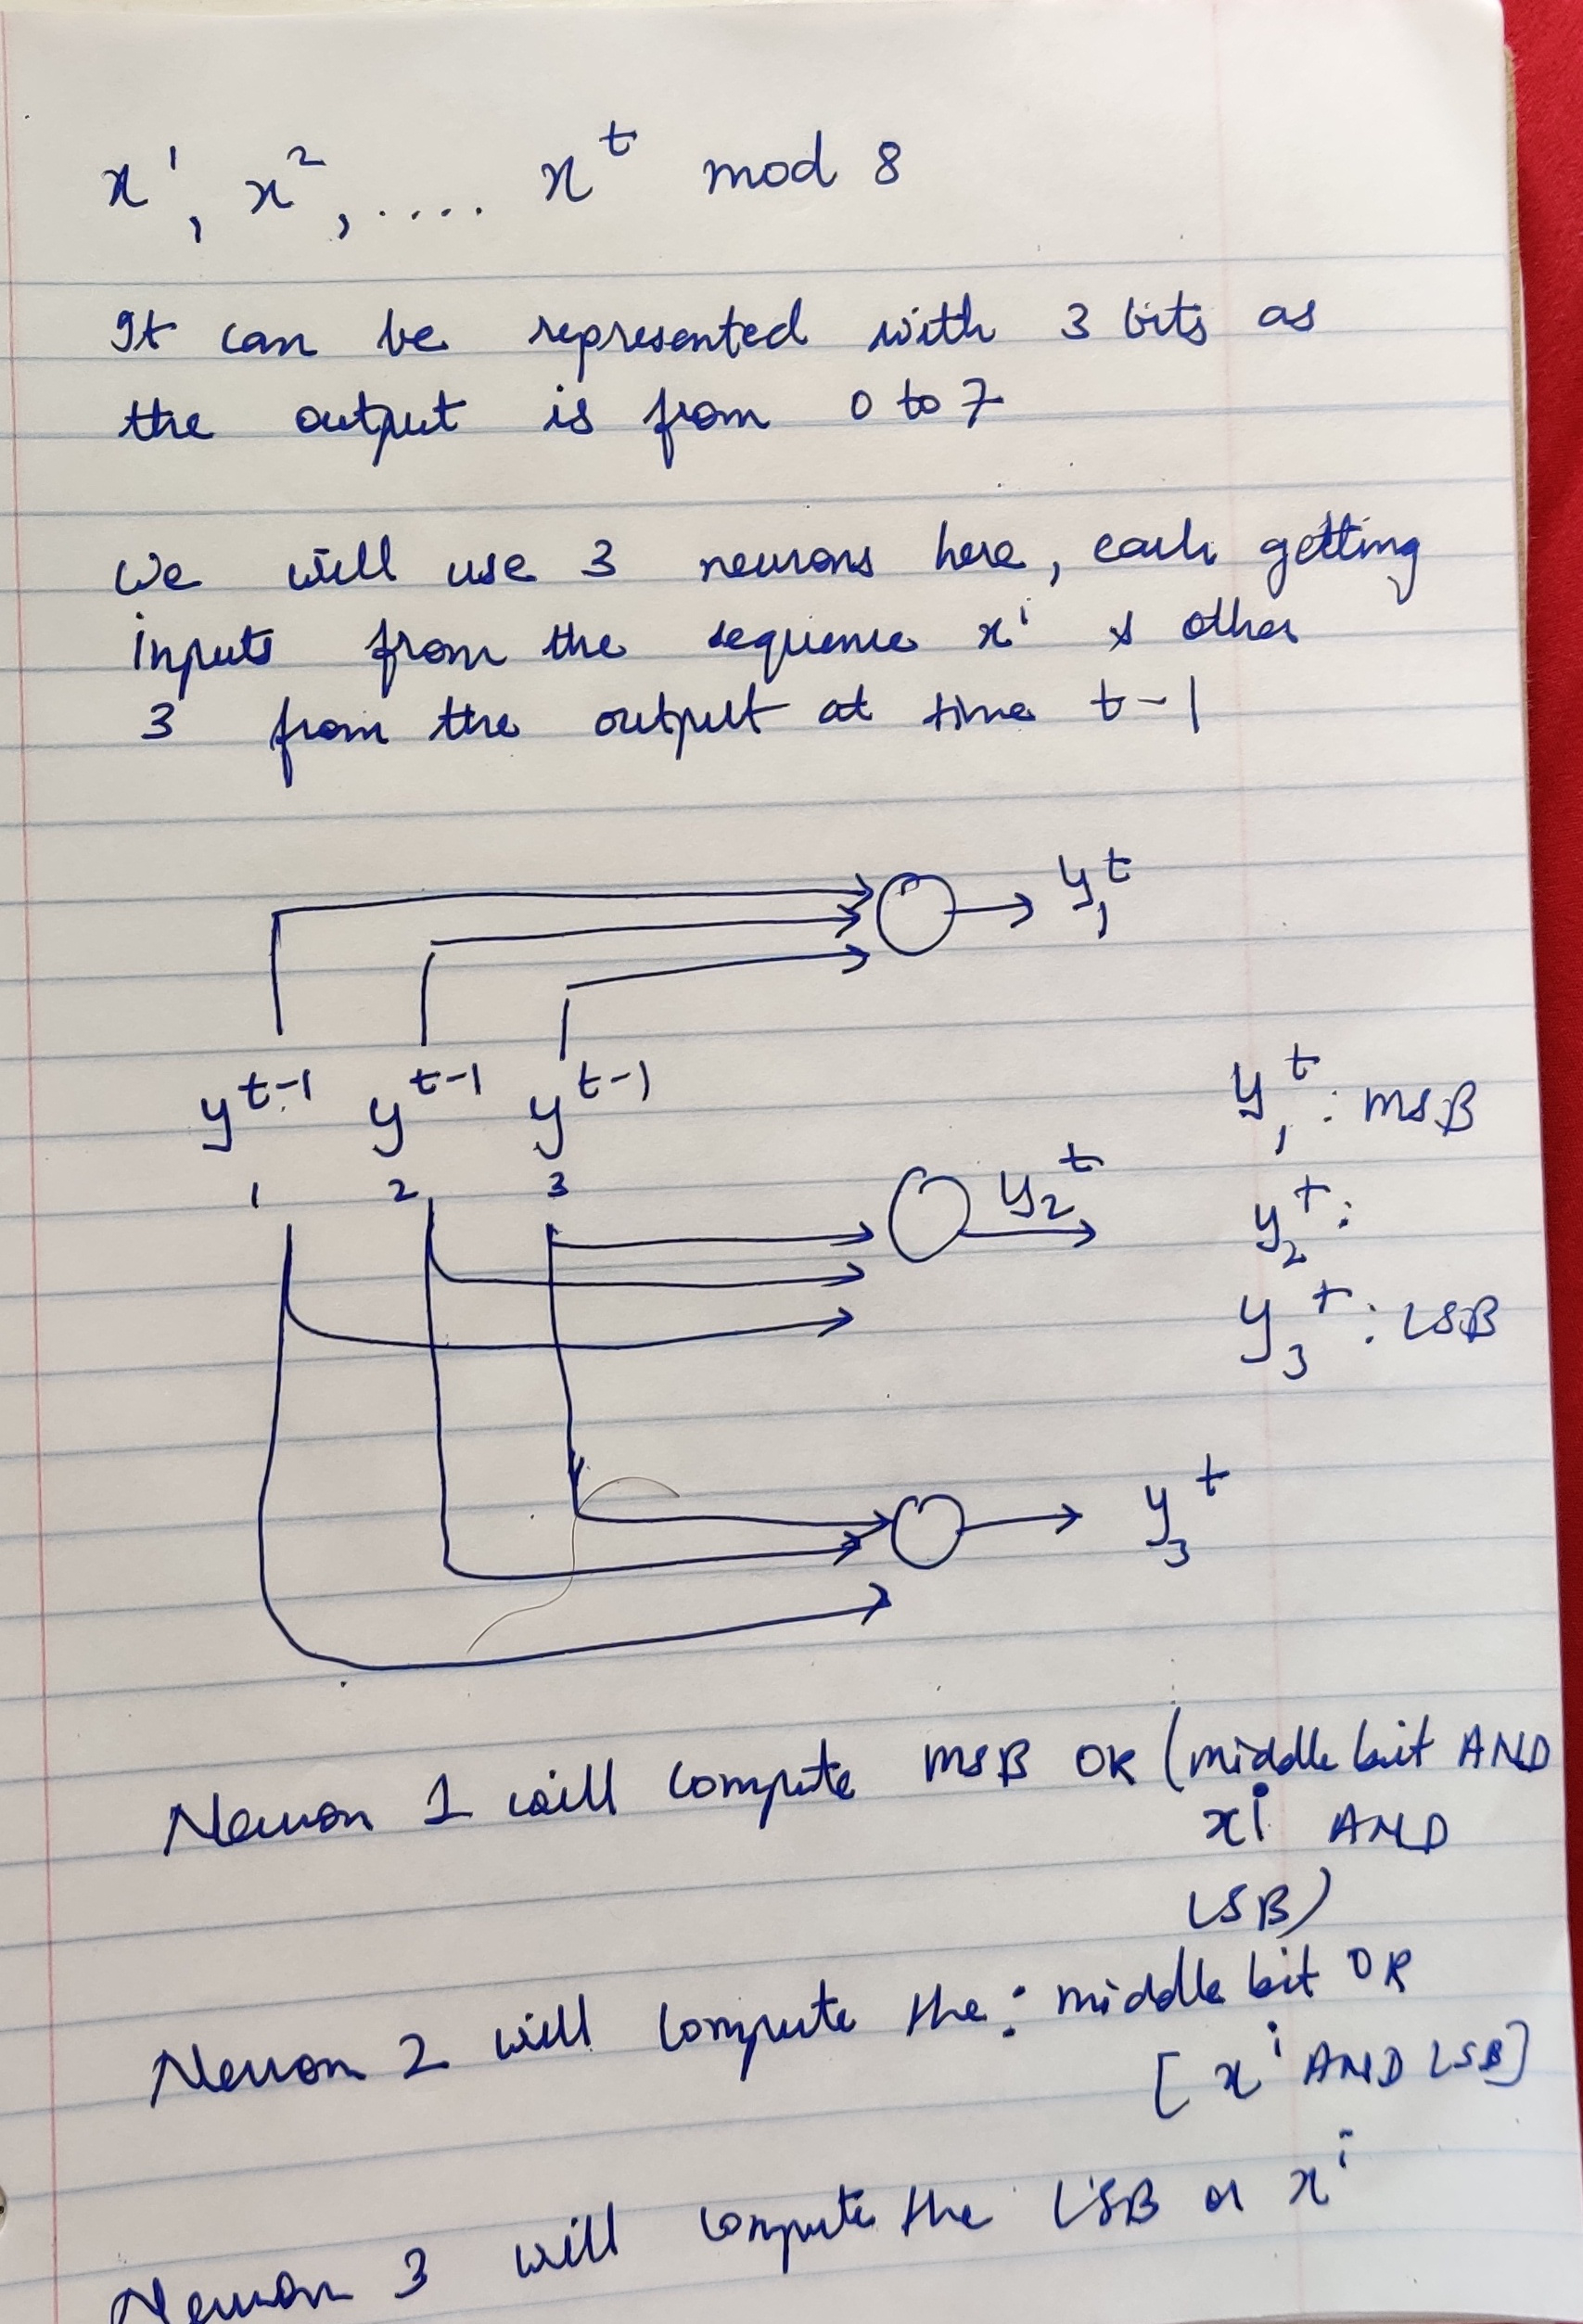 x¹, x², .... xᵗ mod 8
It can be represented with 3 bits as
the output is from 0 to 7
We will use 3 neurons here, each getting
inputs from the sequence xⁱ & other
3 from the output at time t-1
y₁ᵗ
yᵗ⁻¹ yᵗ⁻¹ yᵗ⁻¹
1 2 3
y₁ᵗ : MSB
y₂ᵗ
y₂ᵗ :
y₃ᵗ : LSB
y₃ᵗ
Neuron 1 will compute MSB OR (middle bit AND
xⁱ AND
LSB)
Neuron 2 will compute the : middle bit OR
[xⁱ AND LSB]
Neuron 3 will compute the LSB or xⁱ